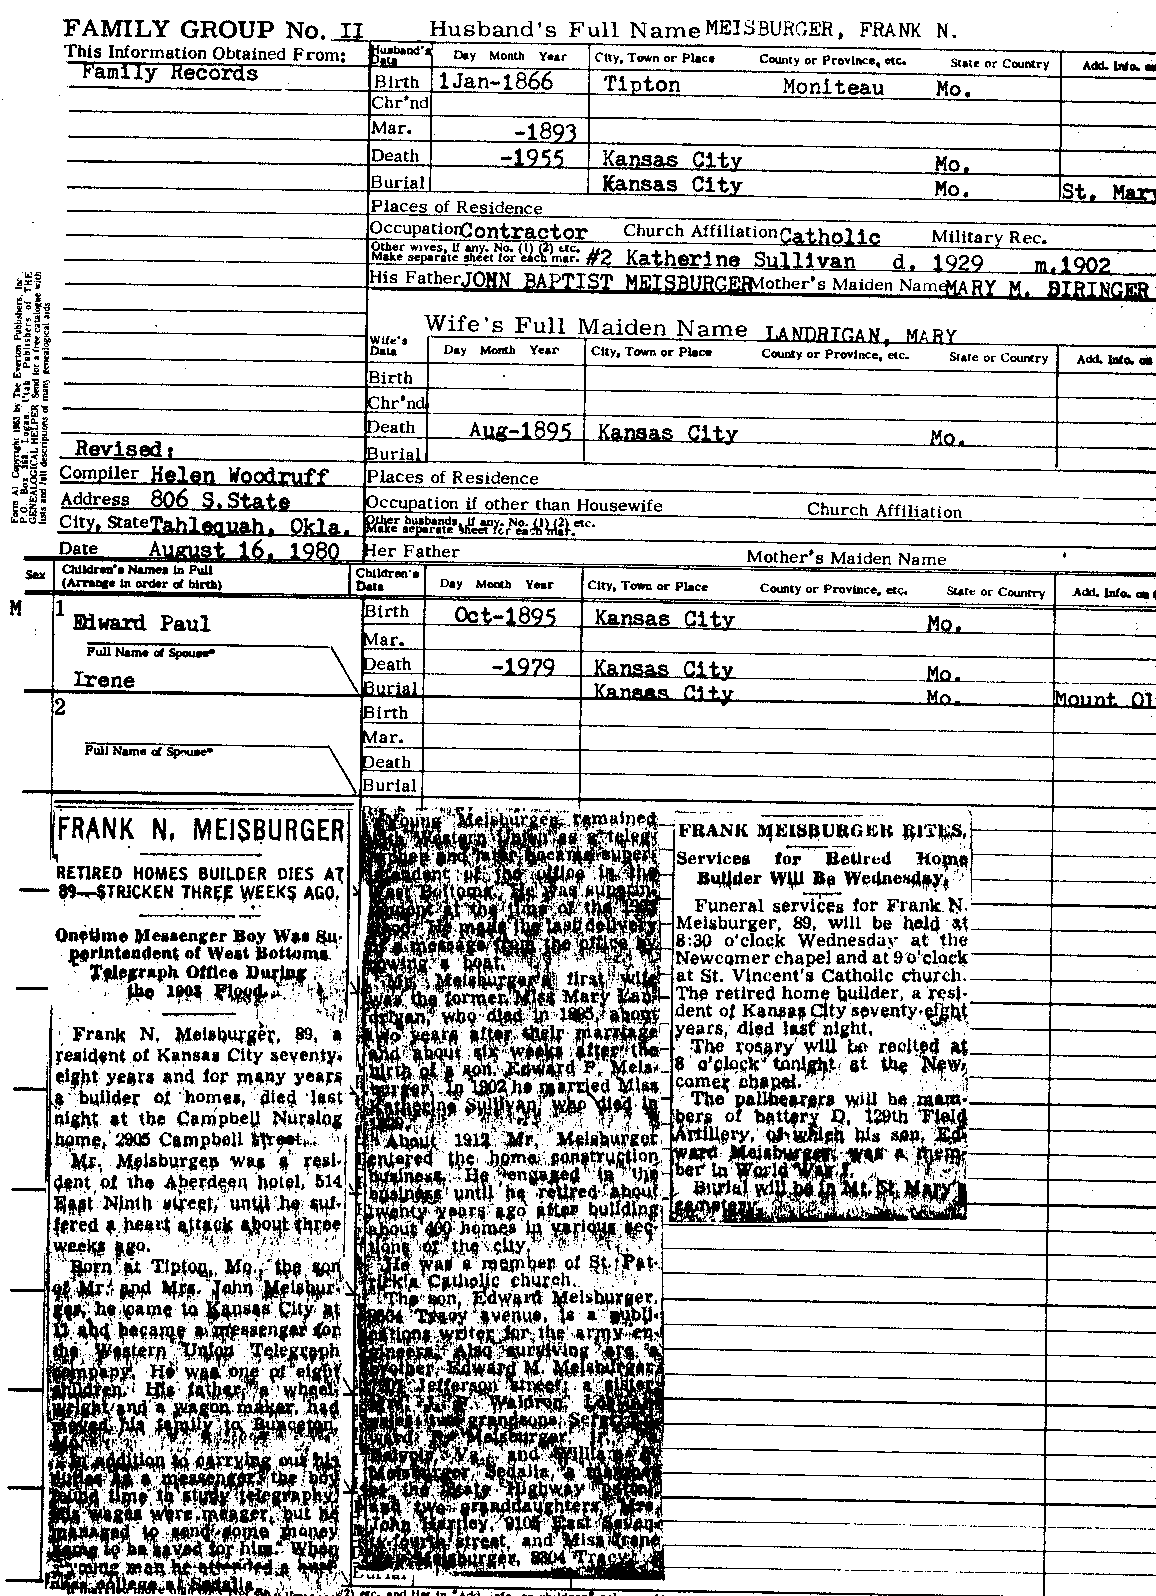 FAMILY GROUP No. II
Husband's Full Name MEISBURGER, FRANK N.
This Information Obtained From:
Family Records
Husband's Data Day Month Year City, Town or Place County or Province, etc. State or Country Add. Info. on
Birth 1Jan-1866 Tipton Moniteau Mo.
Chr'nd
Mar. -1893
Death -1955 Kansas City Mo.
Burial Kansas City Mo. St. Mary
Places of Residence
Occupation Contractor Church Affiliation Catholic Military Rec.
Other wives, if any. No. (1) (2) etc.
Make separate sheet for each mar. #2 Katherine Sullivan d. 1929 m.1902
His Father JOHN BAPTIST MEISBURGER Mother's Maiden Name MARY M. BIRINGER
Wife's Full Maiden Name LANDRIGAN, MARY
Wife's Data Day Month Year City, Town or Place County or Province, etc. State or Country Add. Info. on
Birth
Chr'nd
Death Aug-1895 Kansas City Mo.
Burial
Places of Residence
Occupation if other than Housewife Church Affiliation
Other husbands, if any. No. (1) (2) etc.
Make separate sheet for each mar.
Her Father Mother's Maiden Name
Form A1 Copyright 1963 by The Everton Publishers, Inc.
P.O. Box 368 Logan, Utah Publishers of THE
GENEALOGICAL HELPER Send for a free catalogue with
lists and full descriptions of many genealogical aids
Revised:
Compiler Helen Woodruff
Address 806 S.State
City, State Tahlequah, Okla.
Date August 16, 1980
Sex Children's Names in Full
(Arrange in order of birth)
Children's Data Day Month Year City, Town or Place County or Province, etc. State or Country Add. Info. on
M 1
Edward Paul
Full Name of Spouse*
Irene
Birth Oct-1895 Kansas City Mo.
Mar.
Death -1979 Kansas City Mo.
Burial Kansas City Mo. Mount Ol
2
Full Name of Spouse*
Birth
Mar.
Death
Burial
FRANK N. MEISBURGER
RETIRED HOMES BUILDER DIES AT
89—STRICKEN THREE WEEKS AGO.
Onetime Messenger Boy Was Su-
perintendent of West Bottoms
Telegraph Office During
the 1903 Flood.
Frank N. Meisburger, 89, a
resident of Kansas City seventy-
eight years and for many years
a builder of homes, died last
night at the Campbell Nursing
home, 2905 Campbell street.
Mr. Meisburger was a resi-
dent of the Aberdeen hotel, 514
East Ninth street, until he suf-
fered a heart attack about three
weeks ago.
Born at Tipton, Mo., the son
of Mr. and Mrs. John Meisbur-
ger, he came to Kansas City at
11 and became a messenger for
the Western Union Telegraph
company. He was one of eight
children. His father, a wheel-
wright and a wagon maker, had
moved his family to Bunceton,
Mo.
In addition to carrying out his
duties as a messenger, the boy
found time to study telegraphy.
His wages were meager, but he
managed to send some money
home to be saved for him. When
a young man he attended a busi-
ness college at Sedalia.
Young Meisburger remained
with Western Union as a teleg-
rapher and later became super-
intendent of the office in the
West Bottoms. He was superin-
tendent at the time of the 1903
flood. He made the last delivery
of a message from the office by
rowing a boat.
Mr. Meisburger's first wife
was the former Miss Mary Lan-
drigan, who died in 1895, about
two years after their marriage
and about six weeks after the
birth of a son, Edward P. Meis-
burger. In 1902 he married Miss
Katherine Sullivan, who died in
1929.
About 1912 Mr. Meisburger
entered the home construction
business. He engaged in the
business until he retired about
twenty years ago after building
about 400 homes in various sec-
tions of the city.
He was a member of St. Pat-
rick's Catholic church.
The son, Edward Meisburger,
Tracy avenue, is a publi-
cations writer for the army en-
gineers. Also surviving are a
brother, Edward M. Meisburger,
Jefferson street; a sister,
Waldron,
two grandsons,
Meisburger, jr.,
Va., and William
Meisburger, Sedalia, a
the State Highway patrol,
and two granddaughters, Mrs.
John Hartley, 9105 East Seven-
ty-fourth street, and Miss Irene
Meisburger, 8304 Tracy.
FRANK MEISBURGER RITES.
Services for Retired Home
Builder Will Be Wednesday.
Funeral services for Frank N.
Meisburger, 89, will be held at
8:30 o'clock Wednesday at the
Newcomer chapel and at 9 o'clock
at St. Vincent's Catholic church.
The retired home builder, a resi-
dent of Kansas City seventy-eight
years, died last night.
The rosary will be recited at
8 o'clock tonight at the New-
comer chapel.
The pallbearers will be mem-
bers of battery D, 129th Field
Artillery, of which his son, Ed-
ward Meisburger, was a mem-
ber in World War I.
Burial will be in Mt. St. Mary's
cemetery.